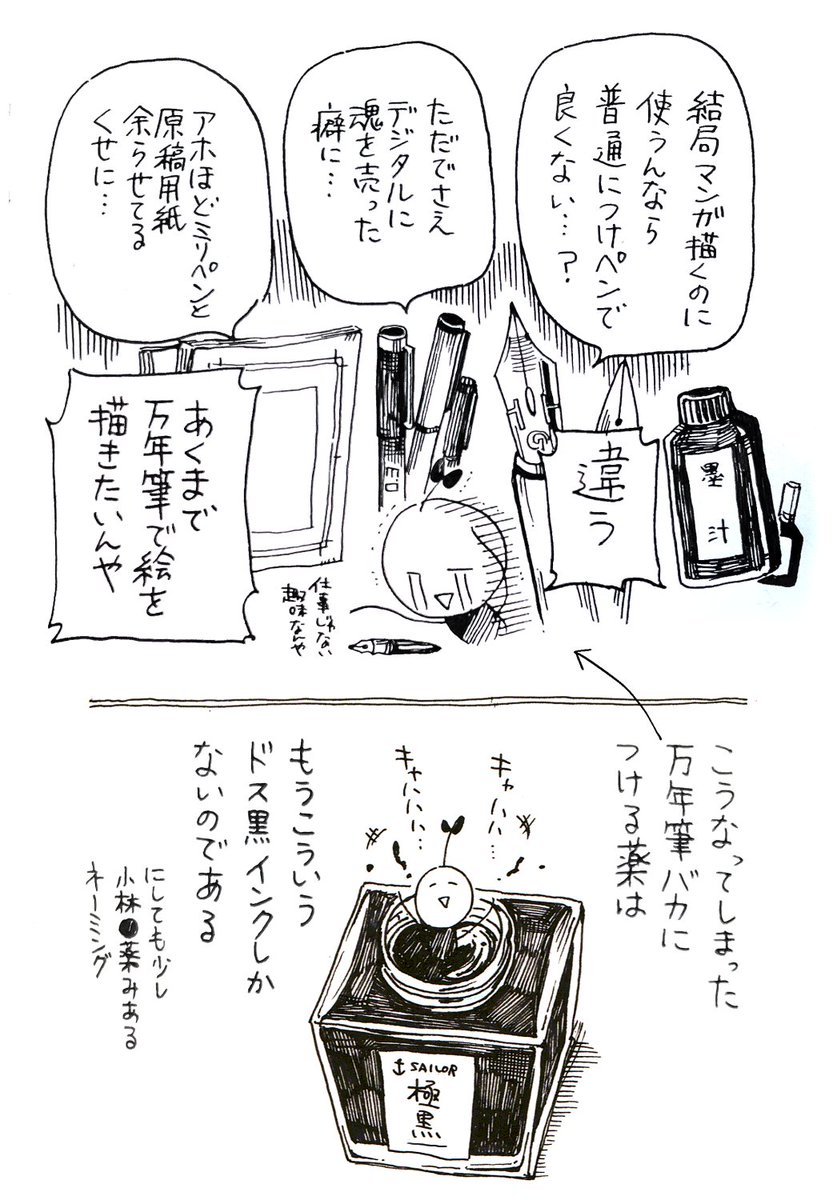 結局マンガ描くのに
使うんなら
普通につけペンで
良くない…?
ただでさえ
デジタルに
魂を売った
癖に…
アホほどミリペンと
原稿用紙
余らせてる
くせに…
墨汁
違う
あくまで
万年筆で絵を
描きたいんや
仕事じゃない
趣味なんや
こうなってしまった
万年筆バカに
つける薬は
キャハハハ…
キャハハハハ…
もうこういう
ドス黒インクしか
ないのである
SAILOR
極黒
にしても少し
小林●薬みある
ネーミング